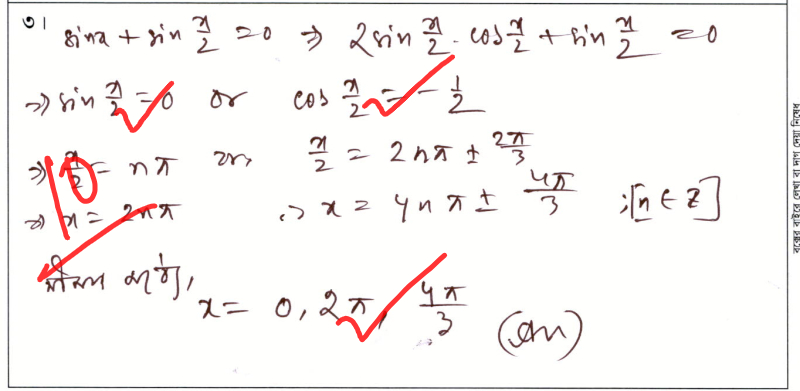 ৩। sinx + sin x/2 = 0 ⇒ 2 sin x/2 . cos x/2 + sin x/2 = 0
⇒ sin x/2 = 0 or cos x/2 = - 1/2
⇒ x/2 = nπ or, x/2 = 2nπ ± 2π/3
10
⇒ x = 2nπ ∴ x = 4nπ ± 4π/3 ;[n ∈ Z]
x = 0, 2π, 4π/3 (Ans)
বক্সের বাইরে লেখা বা দাগ দেয়া নিষেধ